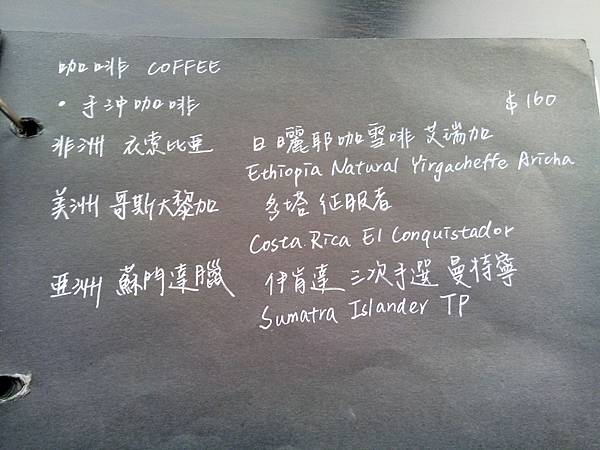 咖啡 COFFEE
• 手沖咖啡 $160
非洲 衣索比亞 日曬耶咖雪啡 艾瑞加
Ethiopia Natural Yirgacheffe Aricha
美洲 哥斯大黎加 多塔 征服者
Costa Rica El Conquistador
亞洲 蘇門達臘 伊肯達 三次手選 曼特寧
Sumatra Islander TP